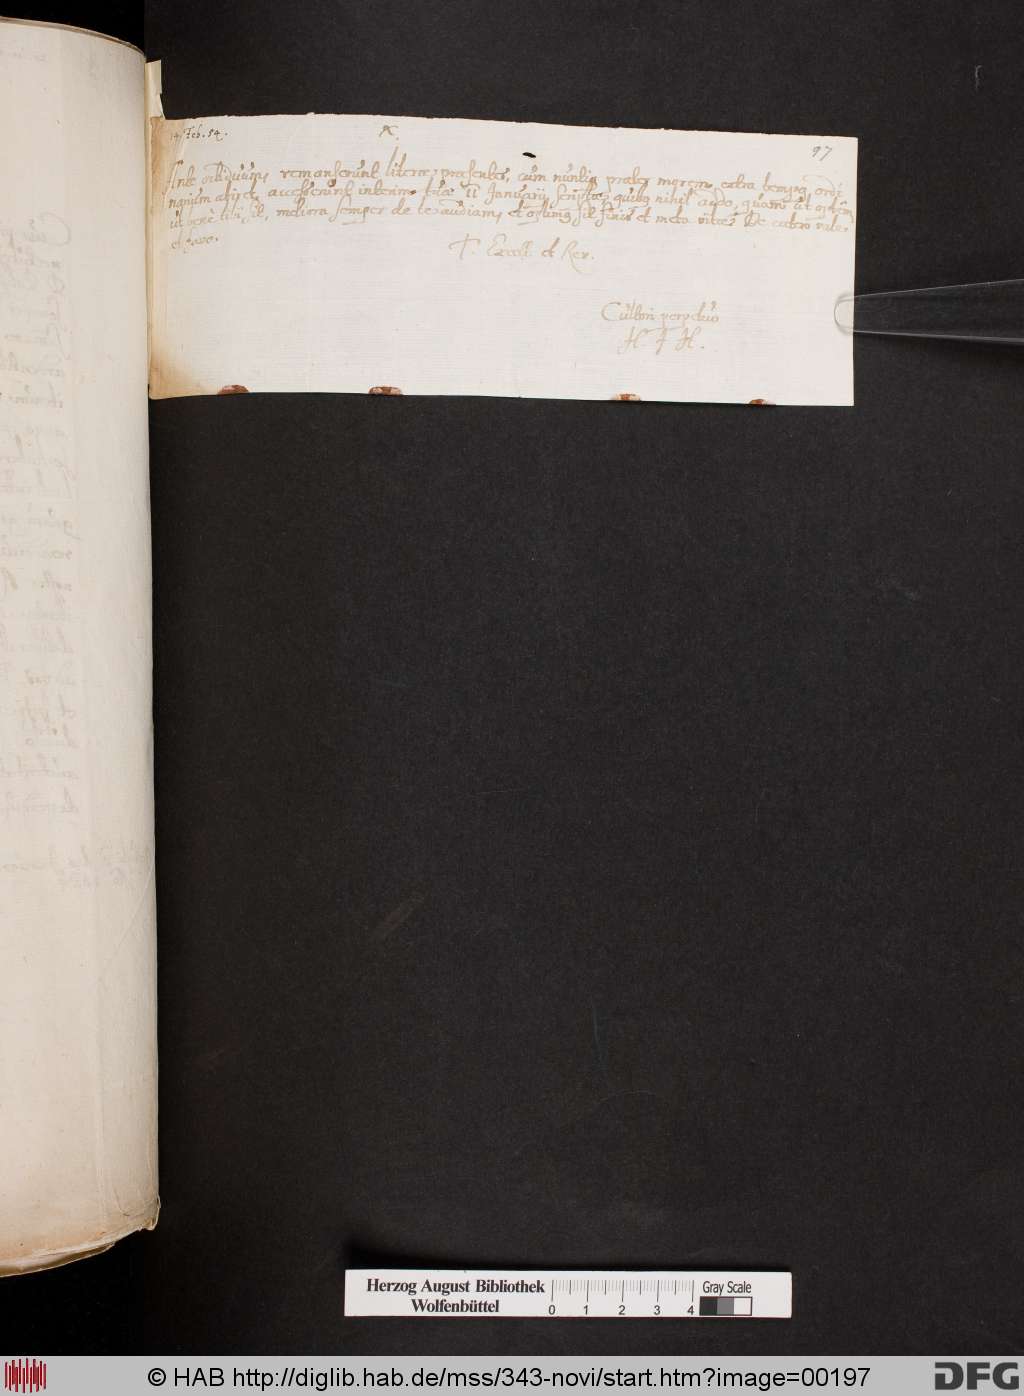 14. Feb. 54.
97
Ante octiduum remanserunt literæ præsentes, cum nuntius præter morem extra tempus ordi
narium abijt, accesserunt interim tuæ 11 Januarij scriptæ, quibus nihil addo, quam ut optem
ut bene tibi sit, meliora semper de te audiam, et optimus sit finis et meta vitæ. De cætero vale
et fave.
T. Excell. et Rev.
Cultori perpetuo
H J H.
Herzog August Bibliothek
Wolfenbüttel
0 1 2 3 4
Gray Scale
© HAB http://diglib.hab.de/mss/343-novi/start.htm?image=00197
DFG